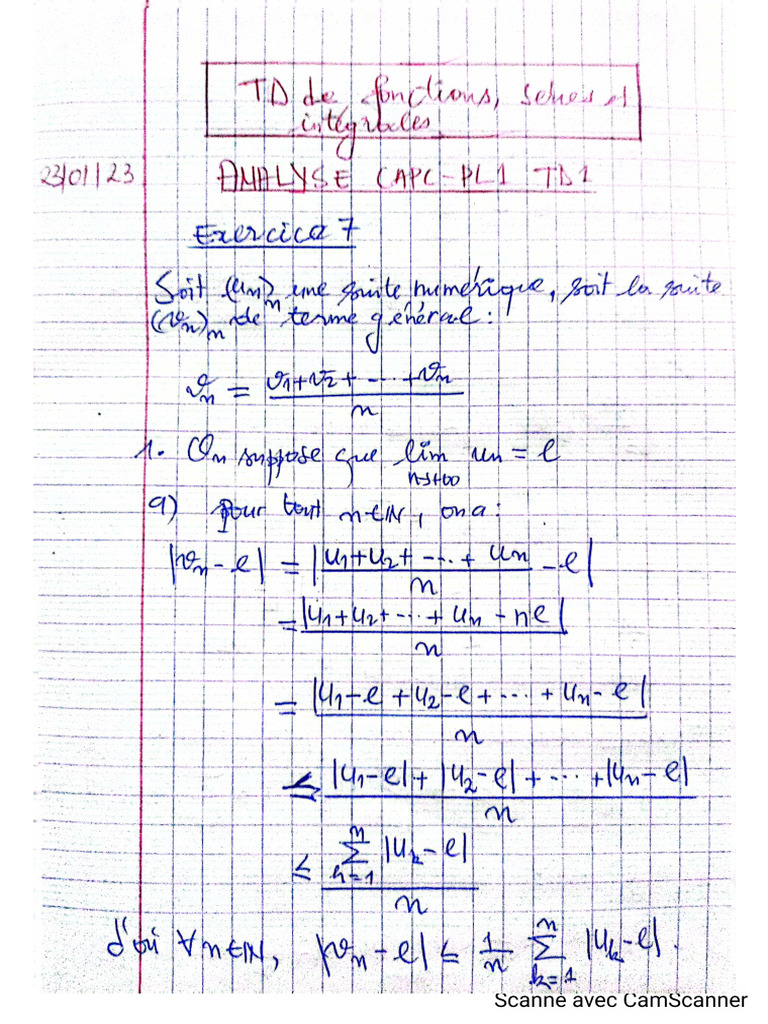 TD de fonctions, séries et
intégrales
23/01/23 ANALYSE CAPC-PL1 TD1
Exercice 7
Soit (un)n une suite numérique, soit la suite
(vn)n de terme général :
vn = v1+v2+ ---- +vn / n
1. On suppose que lim un = l
n→+∞
a) pour tout n∈IN, on a :
|vn - l| = |u1+u2+ ---- + un / n - l|
= |u1+u2+ ---- + un - nl| / n
= |u1-l +u2-l + ---- + un-l| / n
≤ |u1-l| + |u2-l| + ---- + |un-l| / n
≤ ∑ k=1 n |uk-l| / n
d'où ∀n∈IN, |vn-l| ≤ 1/n ∑ k=1 n |uk-l|.
Scanné avec CamScanner